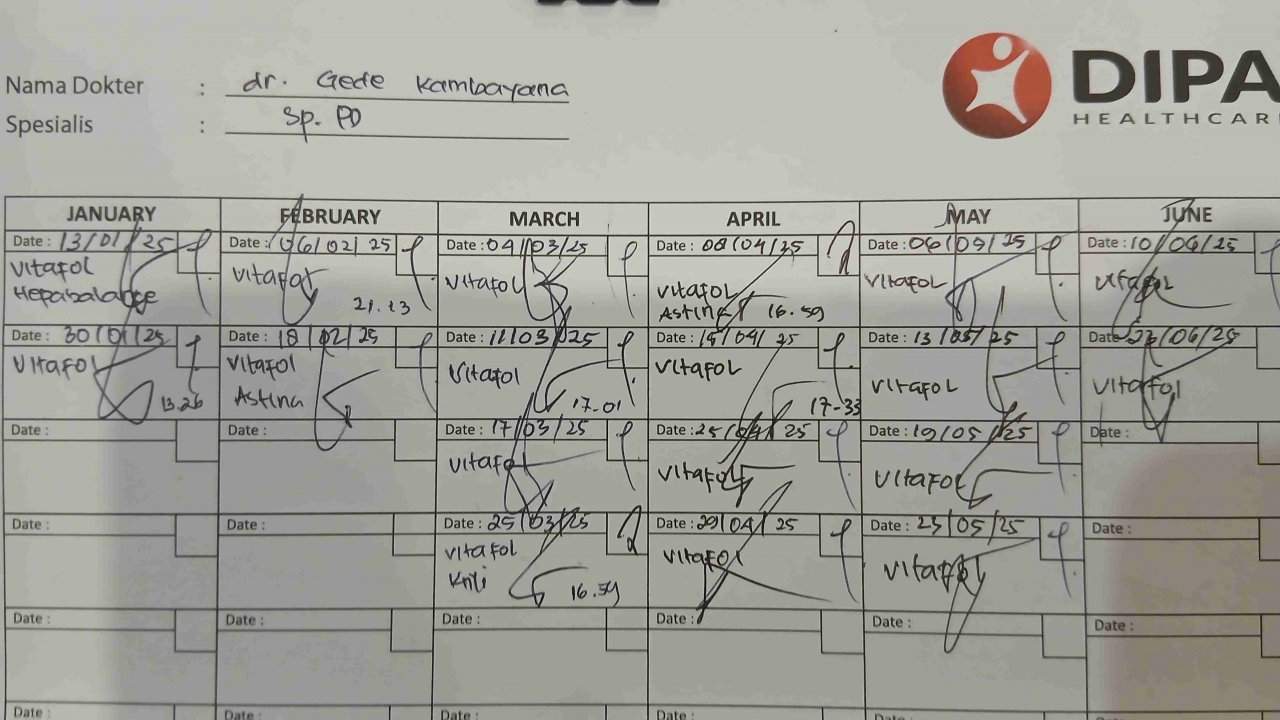 DIPA
HEALTHCAR
Nama Dokter : dr. Gede Kambayana
Spesialis : Sp. PD
JANUARY FEBRUARY MARCH APRIL MAY JUNE
Date : 13/01/25 Date : 06/02/25 Date : 04/03/25 Date : 08/04/25 Date : 06/05/25 Date : 10/06/25
Vitafol Vitafol Vitafol Vitafol Vitafol Vitafol
Hepabalance 21.23 Astina 16.59
Date : 30/01/25 Date : 18/02/25 Date : 11/03/25 Date : 15/04/25 Date : 13/05/25 Date : /06/25
Vitafol Vitafol Vitafol Vitafol Vitafol Vitafol
13.26 Astina 17-01 17-33
Date : Date : Date : 17/03/25 Date : 25/04/25 Date : 19/05/25 Date :
Vitafol Vitafol Vitafol
Date : Date : Date : 25/03/25 Date : 29/04/25 Date : 23/05/25 Date :
Vitafol Vitafol Vitafol
Krili 16.59
Date : Date : Date : Date : Date : Date :
Date : Date : Date : Date : Date : Date :